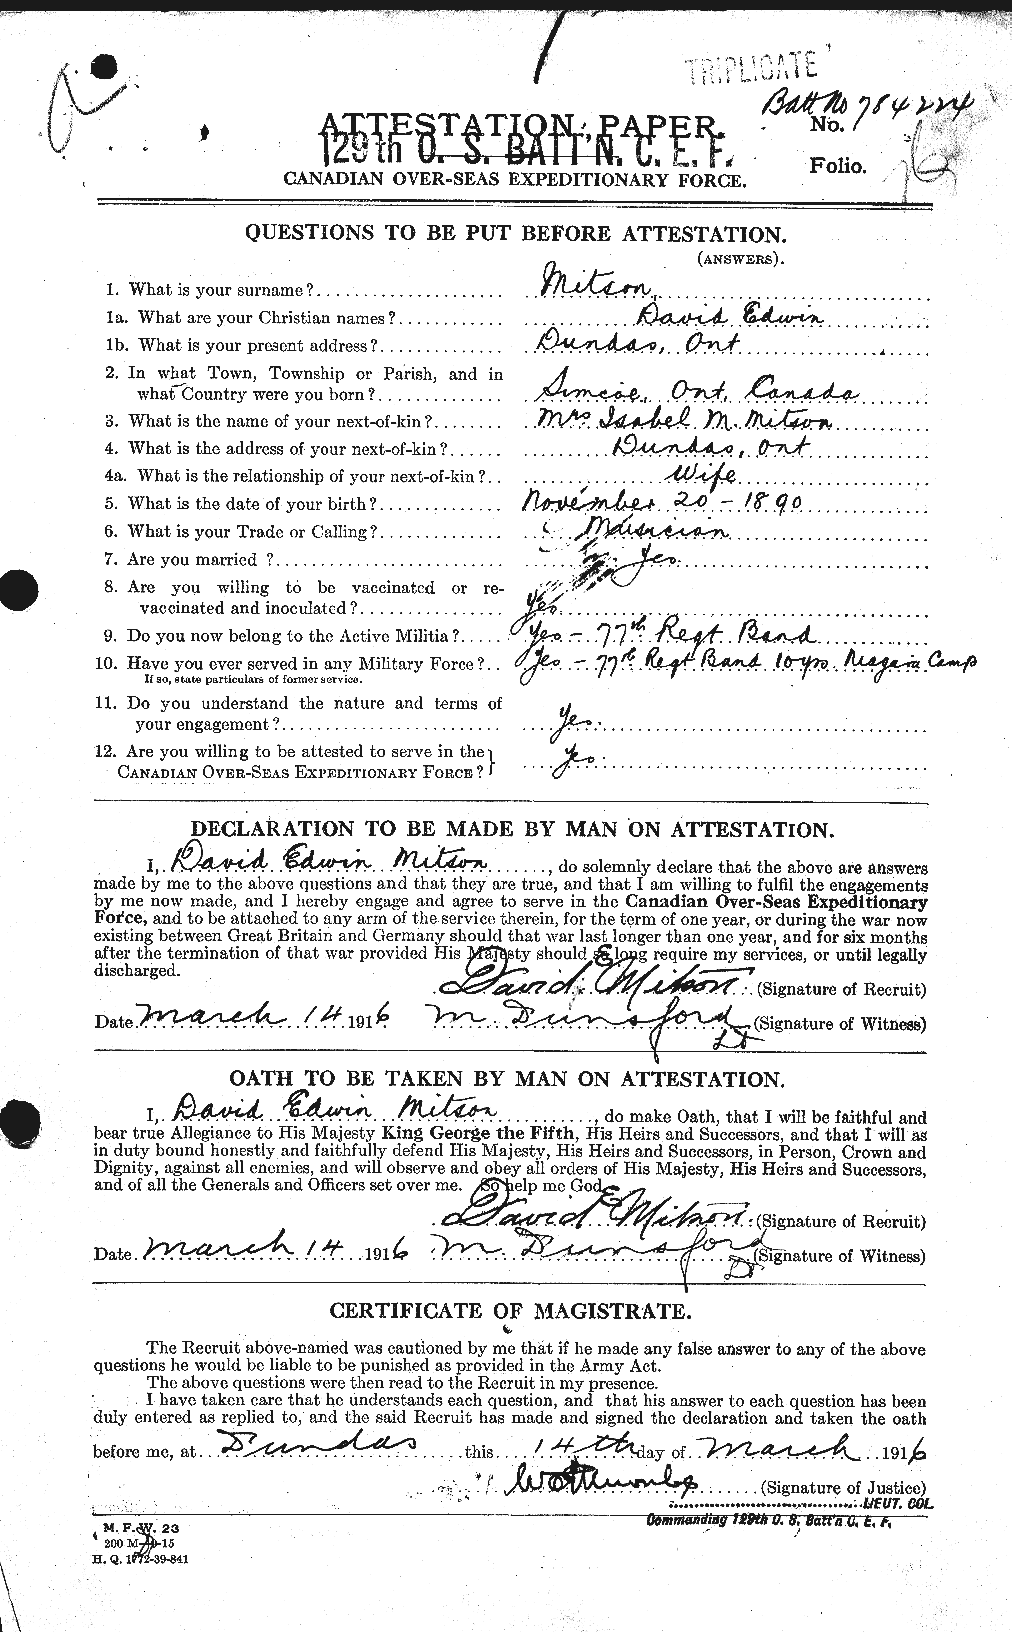 TRIPLICATE
Batt No 784224
ATTESTATION PAPER.
No.
129th O. S. BATT'N. C. E. F.
Folio.
CANADIAN OVER-SEAS EXPEDITIONARY FORCE.
QUESTIONS TO BE PUT BEFORE ATTESTATION.
(ANSWERS).
1. What is your surname? Mitson
1a. What are your Christian names? David Edwin
1b. What is your present address? Dundas, Ont
2. In what Town, Township or Parish, and in
what Country were you born? Simcoe, Ont, Canada
3. What is the name of your next-of-kin? Mrs Isabel M. Mitson
4. What is the address of your next-of-kin? Dundas, Ont
4a. What is the relationship of your next-of-kin? Wife
5. What is the date of your birth? November 20 - 1890
6. What is your Trade or Calling? Musician
7. Are you married ? Yes
8. Are you willing to be vaccinated or re-
vaccinated and inoculated? Yes
9. Do you now belong to the Active Militia? Yes - 77th Regt Band
10. Have you ever served in any Military Force? Yes - 77th Regt Band 10 yrs. Niagara Camp
If so, state particulars of former service.
11. Do you understand the nature and terms of
your engagement? Yes.
12. Are you willing to be attested to serve in the
CANADIAN OVER-SEAS EXPEDITIONARY FORCE? Yes.
DECLARATION TO BE MADE BY MAN ON ATTESTATION.
I, David Edwin Mitson, do solemnly declare that the above are answers
made by me to the above questions and that they are true, and that I am willing to fulfil the engagements
by me now made, and I hereby engage and agree to serve in the Canadian Over-Seas Expeditionary
Force, and to be attached to any arm of the service therein, for the term of one year, or during the war now
existing between Great Britain and Germany should that war last longer than one year, and for six months
after the termination of that war provided His Majesty should so long require my services, or until legally
discharged.
David E Mitson (Signature of Recruit)
Date March 14 1916 M. Dunsford (Signature of Witness)
Lt
OATH TO BE TAKEN BY MAN ON ATTESTATION.
I, David Edwin Mitson, do make Oath, that I will be faithful and
bear true Allegiance to His Majesty King George the Fifth, His Heirs and Successors, and that I will as
in duty bound honestly and faithfully defend His Majesty, His Heirs and Successors, in Person, Crown and
Dignity, against all enemies, and will observe and obey all orders of His Majesty, His Heirs and Successors,
and of all the Generals and Officers set over me. So help me God.
David E Mitson (Signature of Recruit)
Date March 14 1916 M. Dunsford (Signature of Witness)
Lt
CERTIFICATE OF MAGISTRATE.
The Recruit above-named was cautioned by me that if he made any false answer to any of the above
questions he would be liable to be punished as provided in the Army Act.
The above questions were then read to the Recruit in my presence.
I have taken care that he understands each question, and that his answer to each question has been
duly entered as replied to, and the said Recruit has made and signed the declaration and taken the oath
before me, at Dundas this 14th day of March 1916
(Signature of Justice)
LIEUT. COL.
Commanding 129th O. S. Batt'n C. E. F.
M. F. W. 23
200 M-9-15
H. Q. 1772-39-841